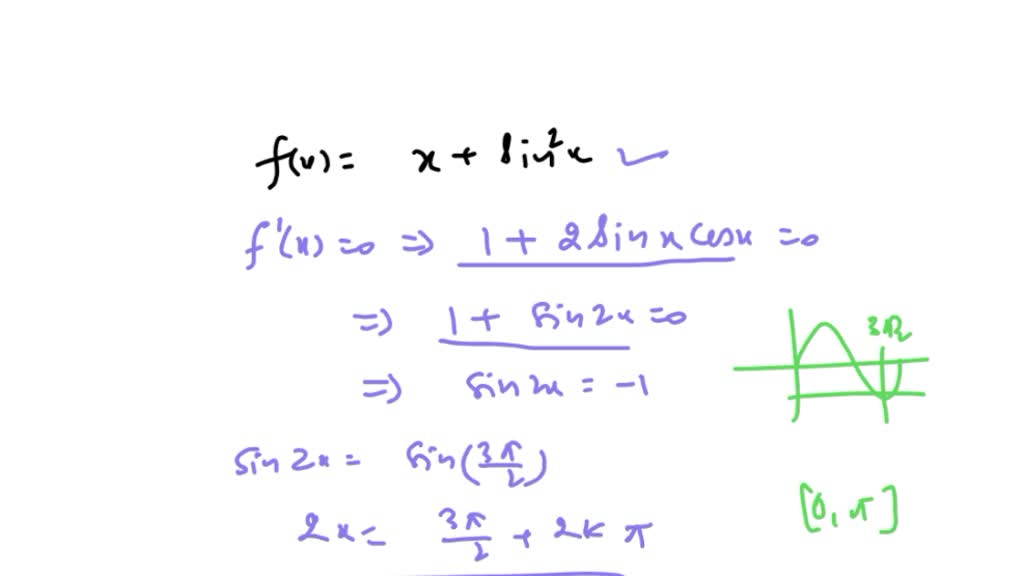 f(x) = x + sin²x ✓
f'(x) = 0 ⇒ 1 + 2 sin x cos x = 0
⇒ 1 + sin 2x = 0
⇒ sin 2x = -1
3π/2
sin 2x = sin(3π/2)
[0, π]
2x = 3π/2 + 2kπ